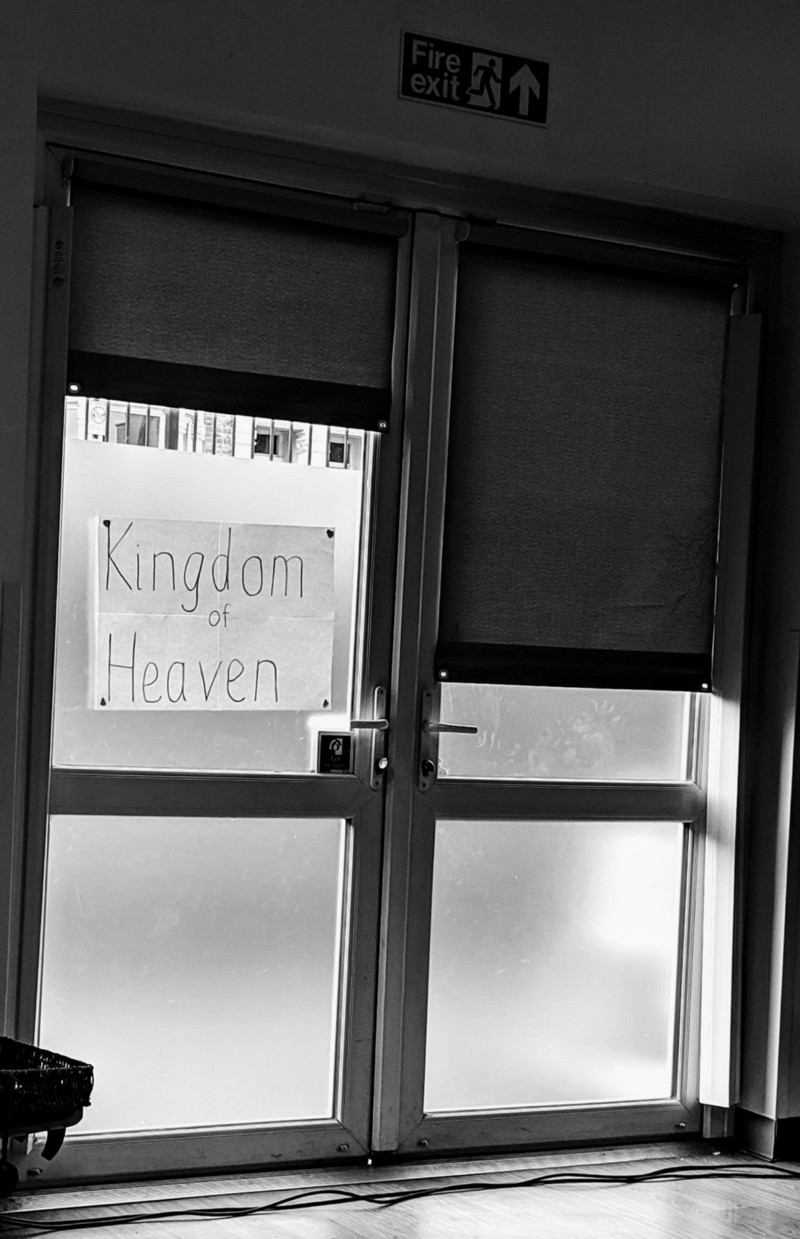 Fire
exit
Kingdom
of
Heaven